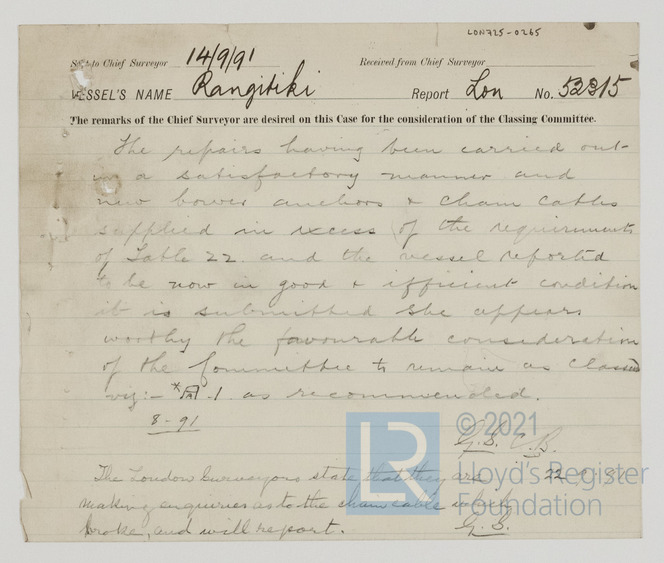 LON725-0265
Sent to Chief Surveyor 14/9/91 Received from Chief Surveyor
VESSEL'S NAME Rangitiki Report Lon No. 52215
The remarks of the Chief Surveyor are desired on this Case for the consideration of the Classing Committee.
The repairs having been carried out
in a satisfactory manner and
new bower anchors & chain cables
supplied in excess of the requirements
of Table 22 and the vessel reported
to be now in good & efficient condition
it is submitted she appears
worthy the favourable consideration
of the Committee to remain as classed
viz:- -1 as recommended.
8-91
G.S. C.B.
22
The London Surveyors state that they are
making enquiries as to the chain cable which
broke, and will report.
G.S.
LR
© 2021
Lloyd's Register
Foundation